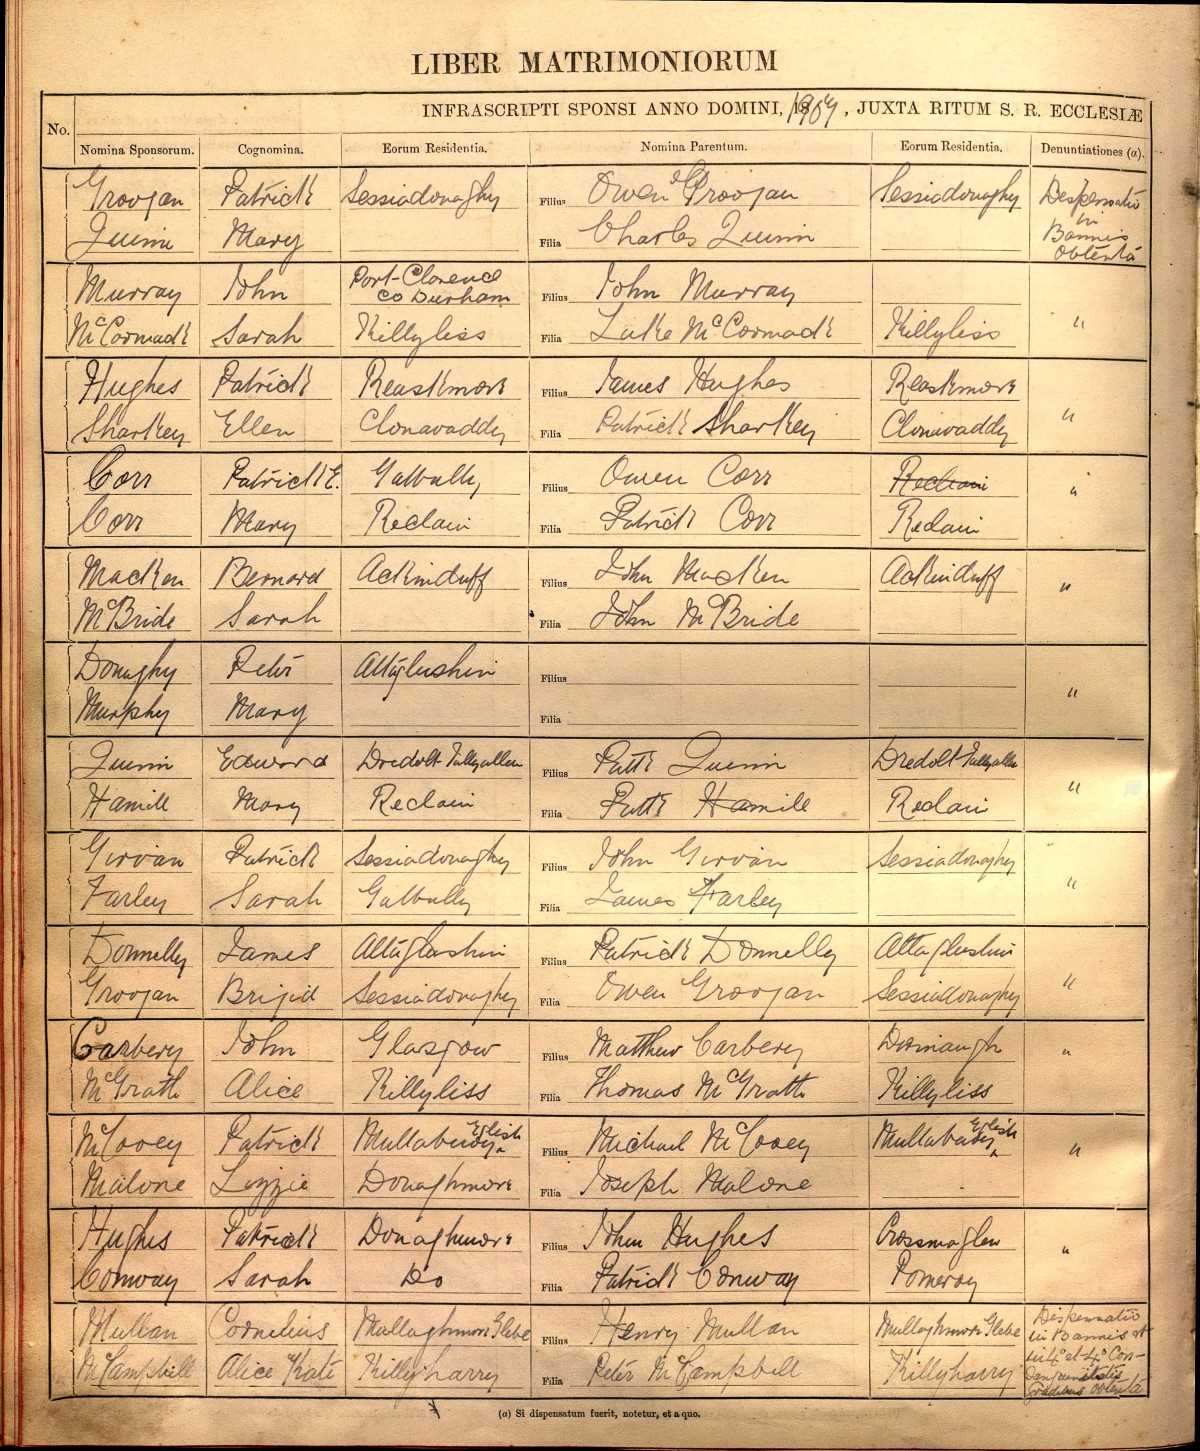 LIBER MATRIMONIORUM
No. INFRASCRIPTI SPONSI ANNO DOMINI, 1909, JUXTA RITUM S. R. ECCLESIÆ
Nomina Sponsorum. Cognomina. Eorum Residentia. Nomina Parentum. Eorum Residentia. Denuntiationes (a).
Groogan Patrick Sessiadonaghy Filius Owen Groogan Sessiadonaghy Dispensatio in
Quinn Mary Filia Charles Quinn Bannis obtenta
Murray John Port-Clarence Co Durham Filius John Murray
McCormack Sarah Killyliss Filia Luke McCormack Killyliss "
Hughes Patrick Reaskmore Filius James Hughes Reaskmore
Sharkey Ellen Clonavaddy Filia Patrick Sharkey Clonavaddy "
Corr Patrick E. Galbally Filius Owen Corr Reclain "
Corr Mary Reclain Filia Patrick Corr Reclain
Macken Bernard Ackinduff Filius John Macken Ackinduff "
McBride Sarah Filia John McBride
Donaghy Peter Altaglushin Filius
Murphy Mary Filia "
Quinn Edward Dredolt Tullyallen Filius Patk Quinn Dredolt Tullyallen
Hamill Mary Reclain Filia Patk Hamill Reclain "
Girvan Patrick Sessiadonaghy Filius John Girvan Sessiadonaghy
Farley Sarah Galbally Filia James Farley "
Donnelly James Altaglushin Filius Patrick Donnelly Altaglushin
Groogan Brigid Sessiadonaghy Filia Owen Groogan Sessiadonaghy "
Carbery John Glasgow Filius Matthew Carbery "
McGrath Alice Killyliss Filia Thomas McGrath Killyliss
McCooey Patrick Eglish Filius Michael McCooey Eglish "
Malone Lizzie Donaghmore Filia Joseph Malone
Hughes Patrick Donaghmore Filius John Hughes Crossmaglen "
Conway Sarah Do Filia Patrick Conway Pomeroy
Mullan Cornelius Mullaghmore Glebe Filius Henry Mullan Mullaghmore Glebe Dispensatio in Bannis et
McCampbell Alice Kate Killyharry Filia Peter McCampbell Killyharry in 4° et 4° Consanguinitatis gradibus obtenta
(a) Si dispensatum fuerit, notetur, et a quo.